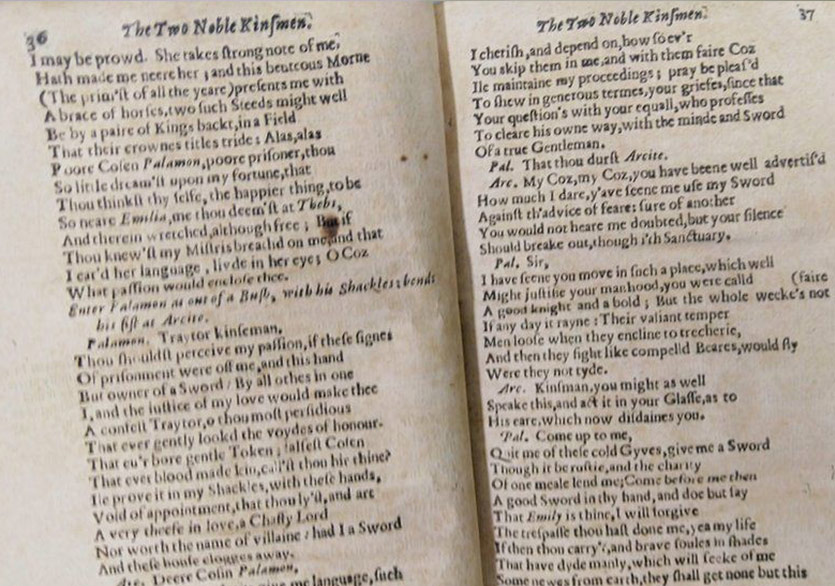 36
The Two Noble Kinſmen.
I may be prowd. She takes ſtrong note of me,
Hath made me neere her ; and this beuteous Morne
(The prim'ſt of all the yeare)preſents me with
A brace of horſes,two ſuch Steeds might well
Be by a paire of Kings backt,in a Field
That their crownes titles tride : Alas,alas
Poore Coſen Palamon,poore priſoner,thou
So little dream'ſt upon my fortune,that
Thou thinkſt thy ſelfe, the happier thing,to be
So neare Emilia,me thou deem'ſt at Thebs,
And therein wretched,although free ; But if
Thou knew'ſt my Miſtris breathd on me,and that
I ear'd her language , livde in her eye; O Coz
What paſſion would encloſe thee.
Enter Palamon as out of a Buſh, with his Shackles: bends
his fiſt at Arcite.
Palamon. Traytor kinſeman,
Thou ſhouldſt perceive my paſſion,if theſe ſignes
Of priſonment were off me,and this hand
But owner of a Sword : By all othes in one
I,and the iuſtice of my love would make thee
A confeſt Traytor,o thou moſt perfidious
That ever gently lookd the voydes of honour.
That eu'r bore gentle Token ; falſeſt Coſen
That ever blood made kin,call'ſt thou hir thine?
Ile prove it in my Shackles,with theſe hands,
Void of appointment,that thou ly'ſt,and art
A very theefe in love,a Chaffy Lord
Nor worth the name of villaine : had I a Sword
And theſe houſe clogges away.
Arc. Deere Coſin Palamon,
me language,ſuch
The Two Noble Kinſmen.
37
I cheriſh,and depend on,how ſo ev'r
You skip them in me,and with them faire Coz
Ile maintaine my proceedings ; pray be pleaſ'd
To ſhew in generous termes,your griefes,ſince that
Your queſtion's with your equall,who profeſſes
To cleare his owne way,with the minde and Sword
Of a true Gentleman.
Pal. That thou durſt Arcite.
Arc. My Coz,my Coz,you have beene well advertiſ'd
How much I dare,y'ave ſeene me uſe my Sword
Againſt th'advice of feare: ſure of another
You would not heare me doubted,but your ſilence
Should breake out,though i'th Sanctuary.
Pal. Sir,
I have ſeene you move in ſuch a place,which well
Might juſtifie your manhood,you were calld (faire
A good knight and a bold ; But the whole weeke's not
If any day it rayne : Their valiant temper
Men looſe when they encline to trecherie,
And then they fight like compelld Beares,would fly
Were they not tyde.
Arc. Kinſman,you might as well
Speake this,and act it in your Glaſſe,as to
His eare,which now diſdaines you.
Pal. Come up to me,
Quit me of theſe cold Gyves,give me a Sword
Though it be ruſtie,and the charity
Of one meale lend me;Come before me then
A good Sword in thy hand,and doe but ſay
That Emily is thine,I will forgive
The treſpaſſe thou haſt done me,yea my life
If then thou carry't,and brave ſoules in ſhades
That have dyde manly,which will ſeeke of me
Some newes from earth,they ſhall get none but this